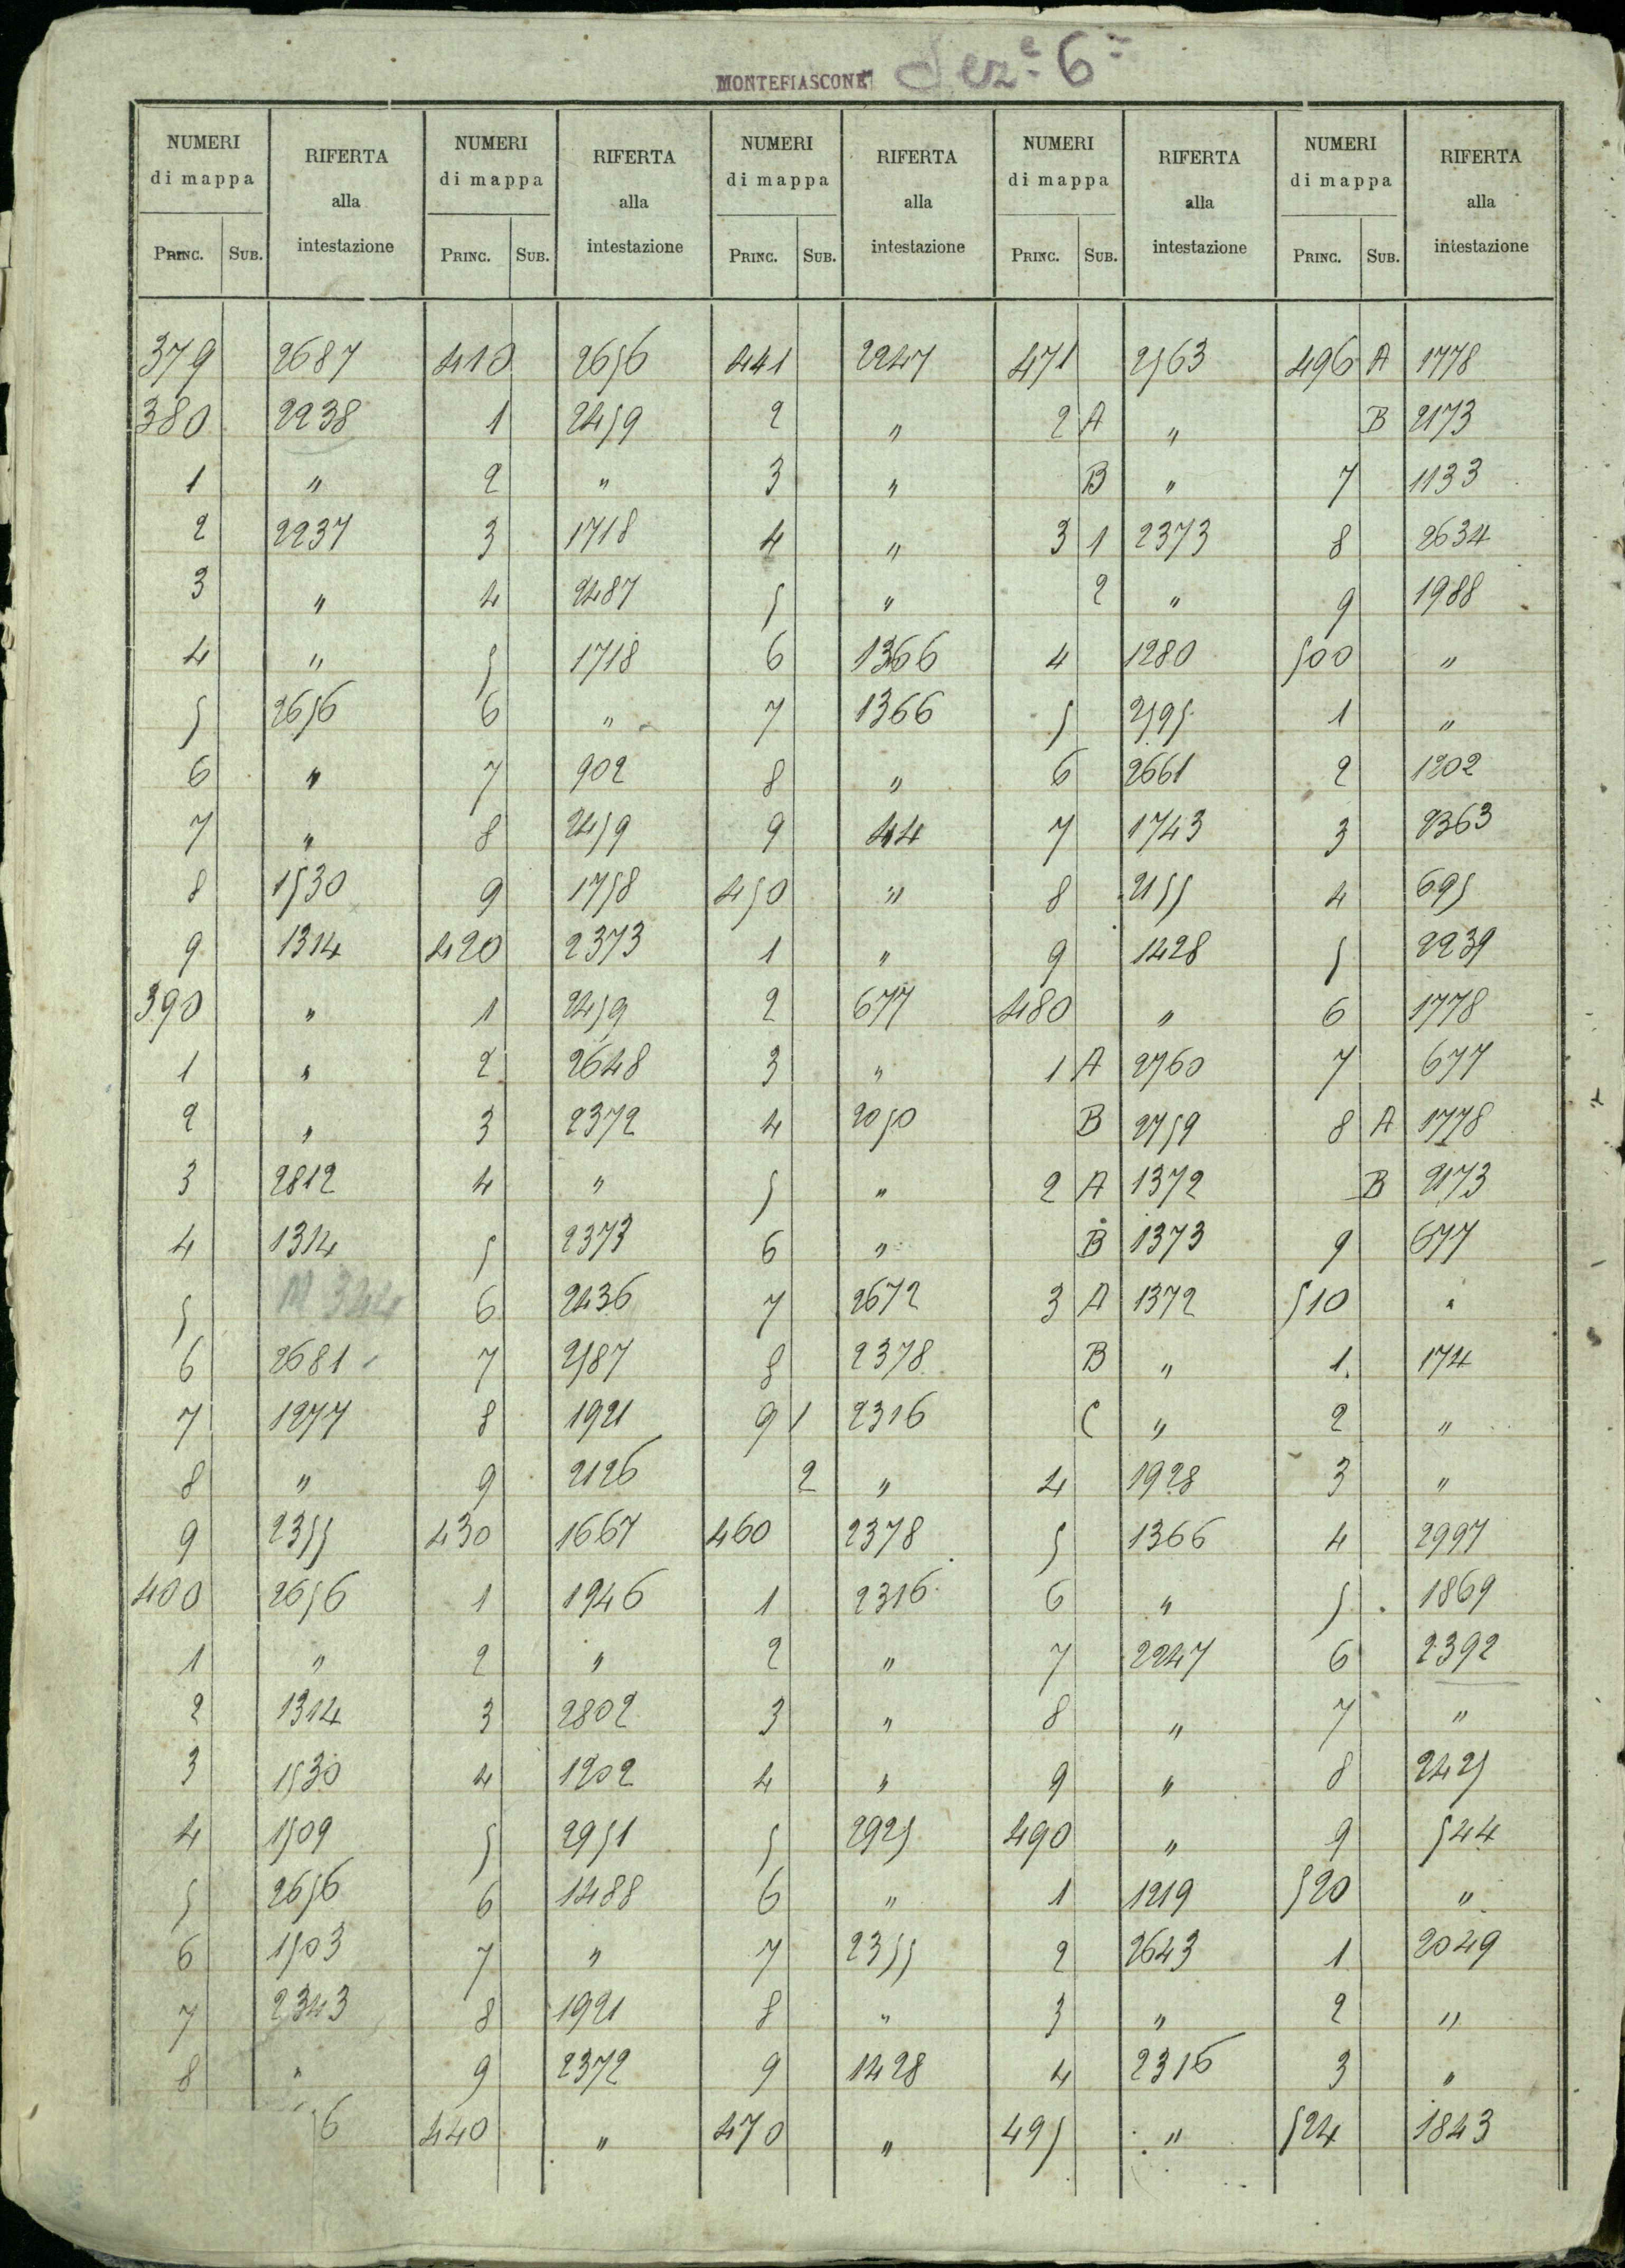 MONTEFIASCONE Sez.e 6a
NUMERI di mappa RIFERTA alla intestazione NUMERI di mappa RIFERTA alla intestazione NUMERI di mappa RIFERTA alla intestazione NUMERI di mappa RIFERTA alla intestazione NUMERI di mappa RIFERTA alla intestazione
PRINC. SUB. PRINC. SUB. PRINC. SUB. PRINC. SUB. PRINC. SUB.
379 2687 410 2656 441 2247 471 2563 496 A 1778
380 2238 1 2459 2 " 2 A " B 2173
1 " 2 " 3 " B " 7 1133
2 2237 3 1718 4 " 3 1 2373 8 2634
3 " 4 2487 5 " 2 " 9 1988
4 " 5 1718 6 1366 4 1280 500 "
5 2656 6 " 7 1366 5 2595 1 "
6 " 7 902 8 " 6 2661 2 1202
7 " 8 2459 9 44 7 1743 3 2363
8 1530 9 1758 450 " 8 2155 4 695
9 1314 420 2373 1 " 9 1428 5 2239
390 " 1 2459 2 677 480 " 6 1778
1 " 2 2648 3 " 1 A 2760 7 677
2 " 3 2372 4 2050 B 2759 8 A 1778
3 2812 4 " 5 " 2 A 1372 B 2173
4 1314 5 2373 6 " B 1373 9 677
5 6 2436 7 2672 3 A 1372 510 "
6 2681 7 2587 8 2378 B " 1 174
7 1277 8 1921 9 1 2316 C " 2 "
8 " 9 2126 2 " 4 1928 3 "
9 2355 430 1667 460 2378 5 1366 4 2997
400 2656 1 1946 1 2316 6 " 5 1869
1 " 2 " 2 " 7 2247 6 2392
2 1314 3 2802 3 " 8 " 7 "
3 1530 4 1202 4 " 9 " 8 2425
4 1509 5 2951 5 2925 490 " 9 544
5 2656 6 1488 6 " 1 1219 520 "
6 1503 7 " 7 2355 2 2643 1 2049
7 2343 8 1921 8 " 3 " 2 "
8 " 9 2372 9 1428 4 2316 3 "
56 440 " 470 " 495 " 524 1843